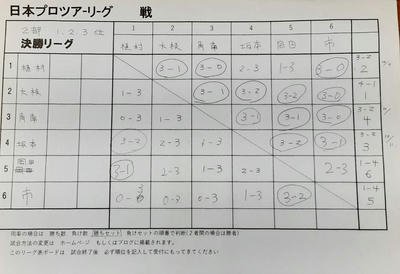 日本プロツアーリーグ 戦
2部 1,2,3位
決勝リーグ
1 2 3 4 5 6
植村 大根 角南 坂本 岡田 市
1 植村 3-1 3-0 2-3 1-3 3-0 3-2 2
2 大根 1-3 3-1 3-2 3-2 3-0 4-1 1
3 角南 0-3 1-3 3-1 3-1 3-0 3-2 4
4 坂本 3-2 2-3 1-3 3-2 3-1 3-2 3
5 岡田 3-1 2-3 1-3 2-3 2-3 1-4 6
6 市 0-3 0-3 0-3 1-3 3-2 1-4 5
同率の場合は 勝ち数 負け数 勝ちセット 負けセットの順番で判断(2者間の場合は勝者)
試合方法の変更は ホームページ もしくはブログに掲載されます。
このリーグ表ボードは 試合終了後 必ず順位を記入して受付にもってきてください